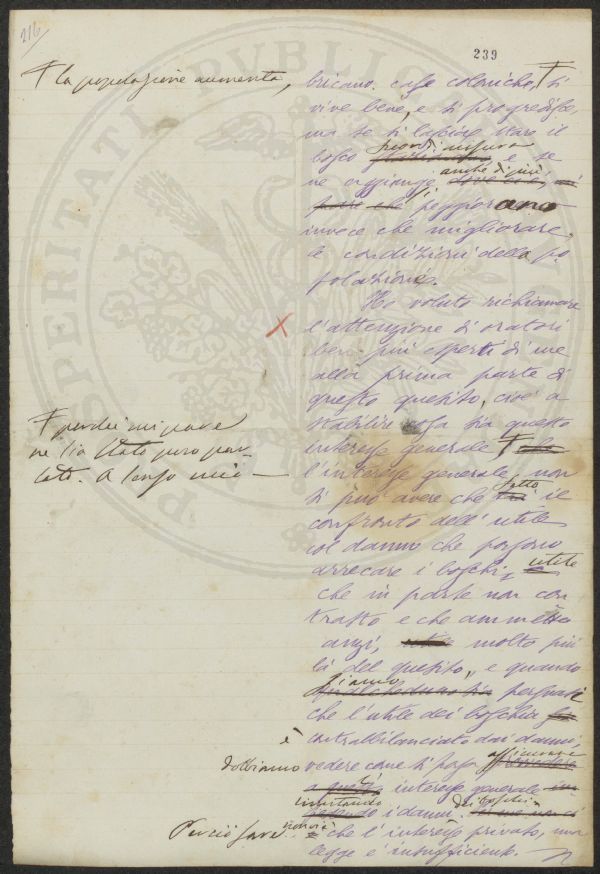 216/
239
Ŧ la popolazione aumenta,
bricano case coloniche, Ŧ si
vive bene, e si progredisce,
ma se si lascia stare il
fuordi misura
bosco e se
anche di più
ne aggiunge
peggiorano
invece che migliorare,
le condizioni della po
polazione.
Ho voluto richiamare
X
l'attenzione di oratori
ben più esperti di me
alla prima parte di
questo quesito, cioè a
stabilire cosa sia questo
Ŧ perchè mi pare
ne sia stato poco par-
lato. A senso mio
interesse generale Ŧ
l'interesse generale, non
fatto
si può avere che il
confronto dell'utile
col danno che possono
arrecare i boschi, utile
che in parte non con
trasto e che ammetto
anzi, molto più
là del quesito, e quando
siamo
persuasi
che l'utile dei boschi
è
controbilanciato dai danni,
dobbiamo vedere come si possa assicurare
interesse generale
limitando i danni dei boschi
Perciò
che l'interesse privato, una
legge è insufficiente.
PROSPERITATI PVBLICAE